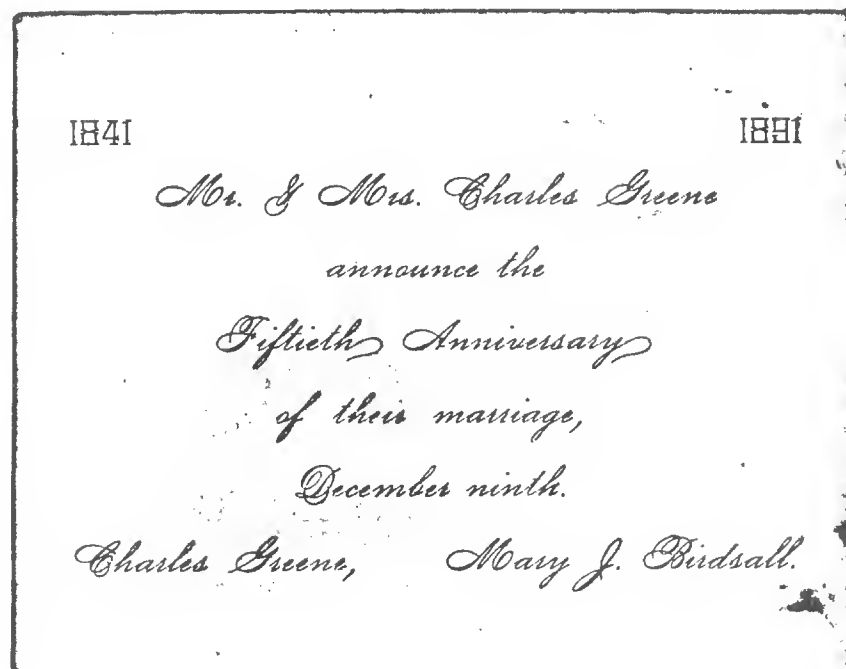 1841 1891
Mr. & Mrs. Charles Greene
announce the
Fiftieth Anniversary
of their marriage,
December ninth.
Charles Greene, Mary J. Birdsall.